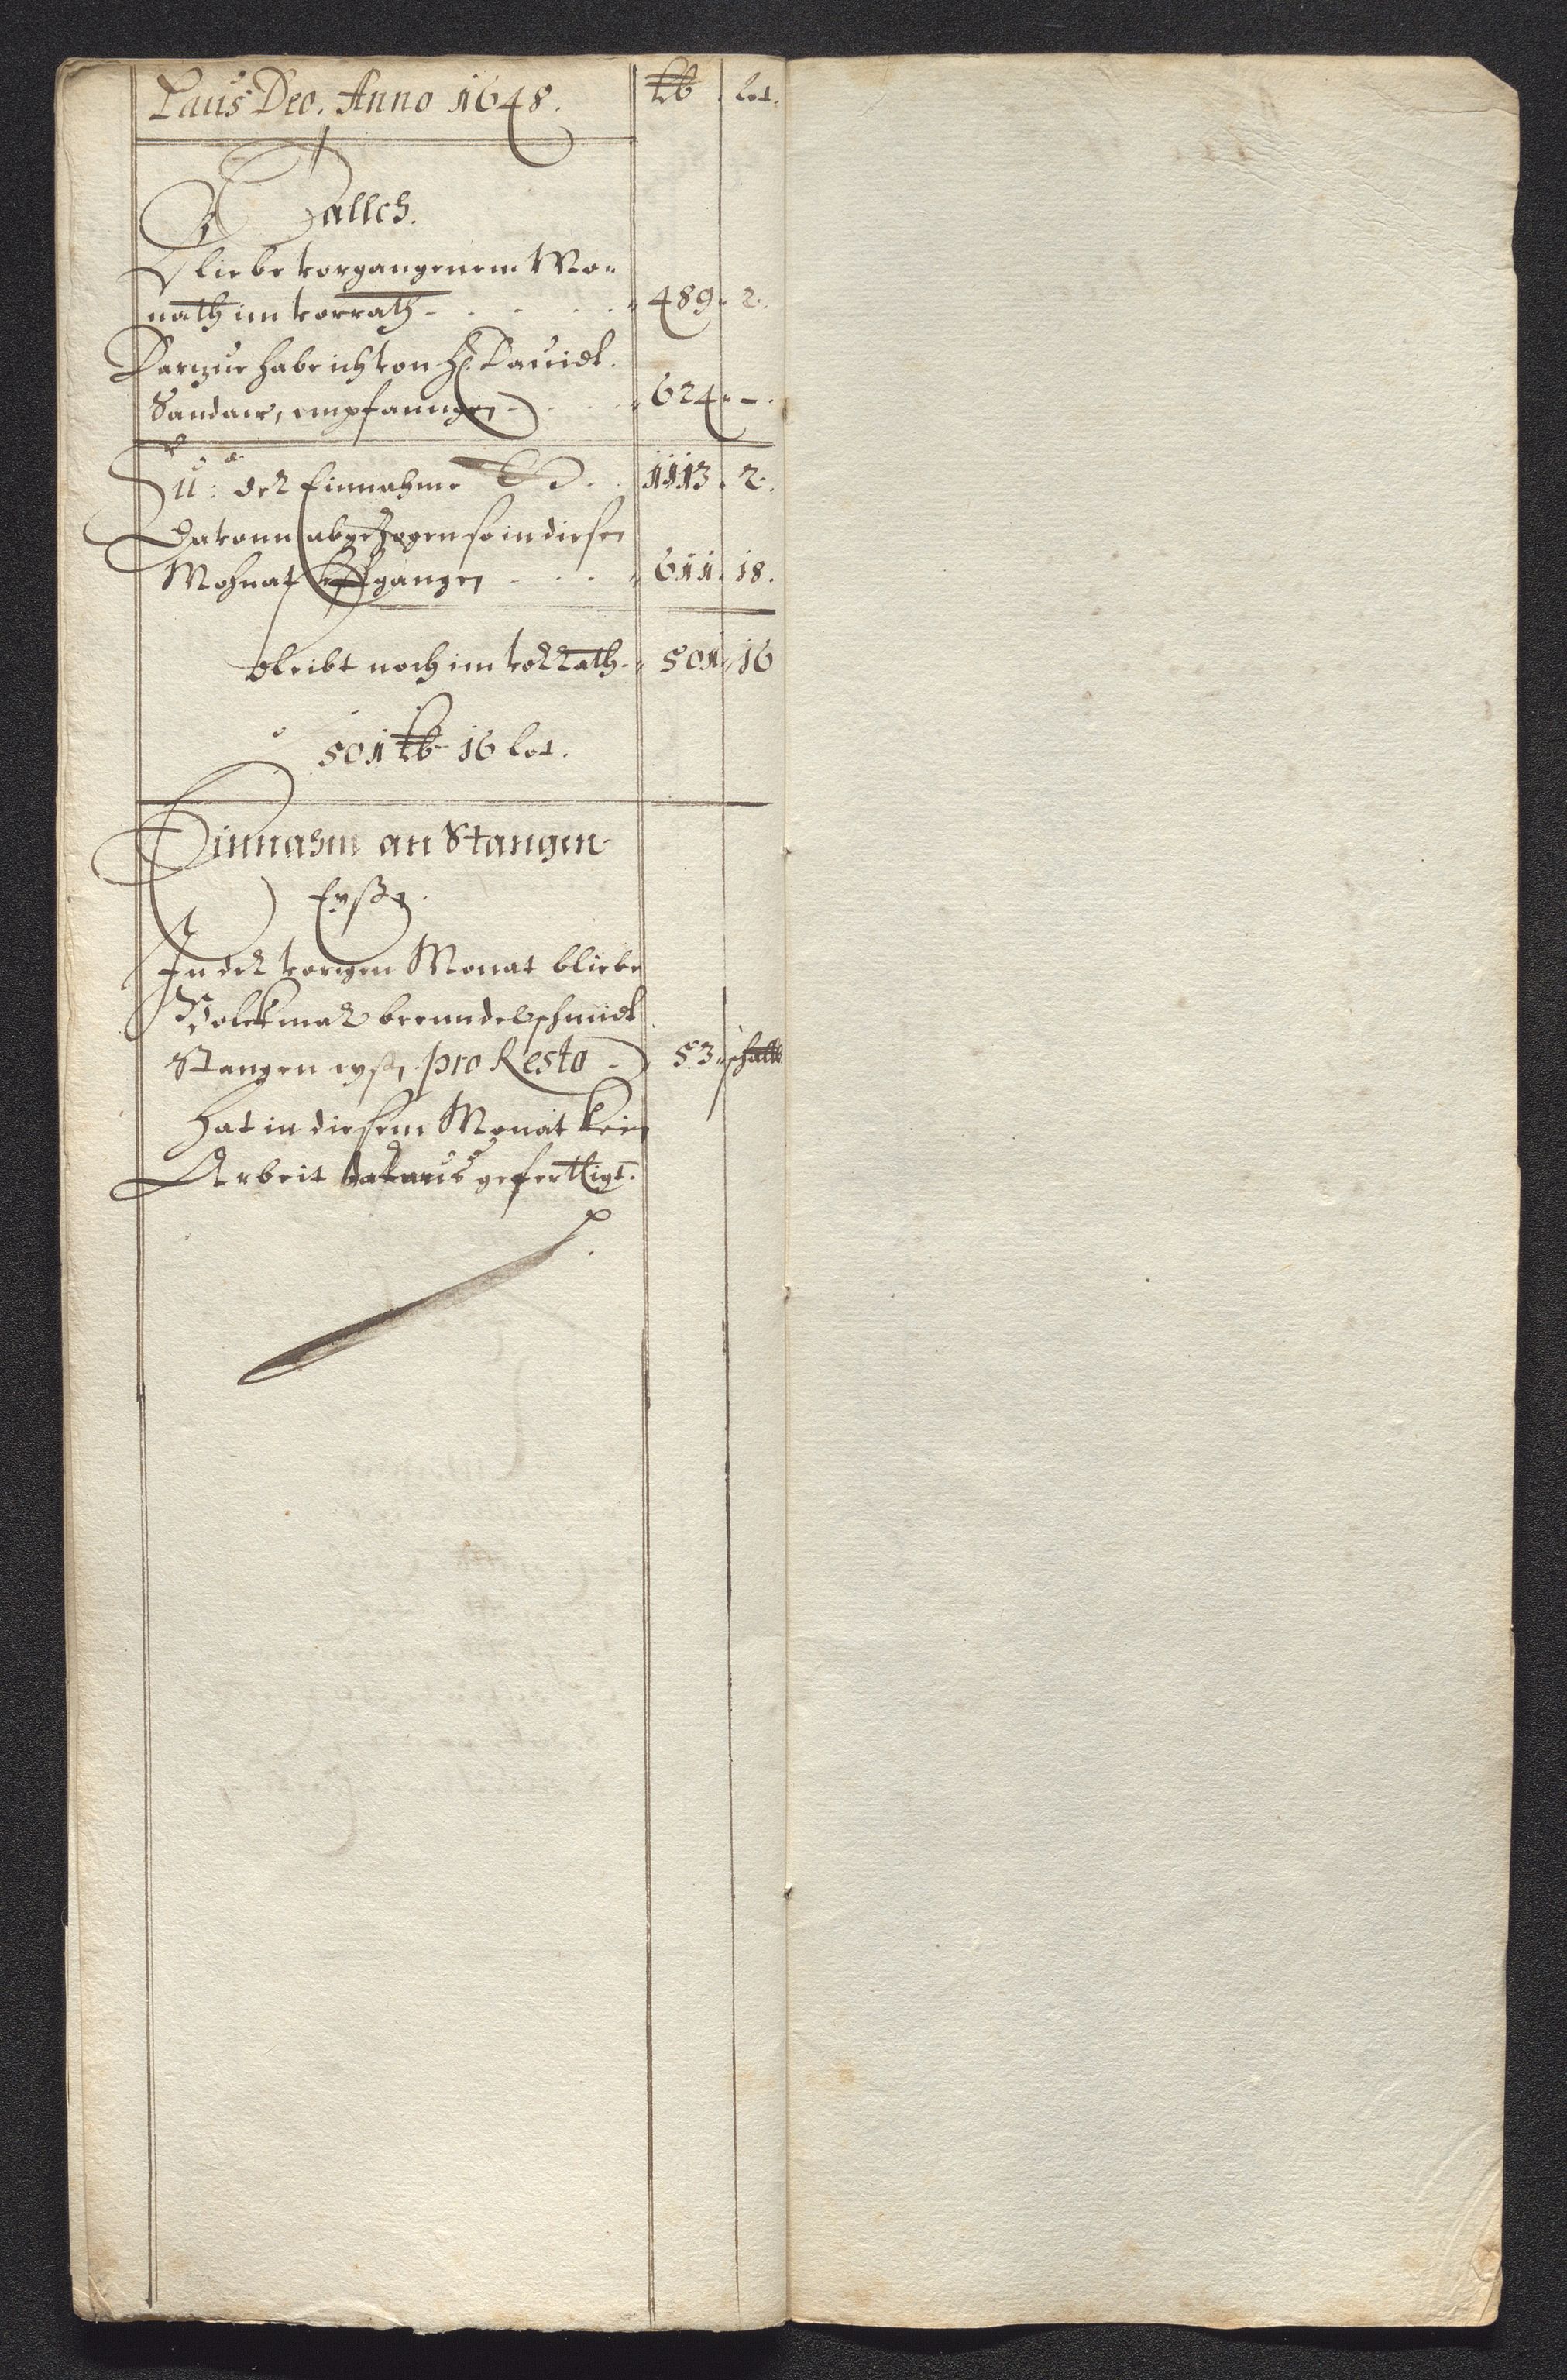 Laus Deo. Anno 1648. ℔ lot.
Talleh.
Bliebe vorgangenem Mo-
nath im vorrath - . . . . 489. 2.
Darzue habe ich von H. Dauidt
Sandaw, empfanngen - . . . 624. -.
Su: der Einnahme . . 1113. 2.
Dauonn abgezogen so in diesen
Mohnat uffgangen . . . 611. 18.
bleibt noch im vorrath. 501. 16
501 ℔ 16 lot.
Einnahm an Stangen-
Eyßen.
In der vorigen Monat bliebe
Volckmar brenndelschmidt
Stangen eyßen pro Resto - 53
Hat in diesem Monat kein
Arbeit daraus gefertligt.